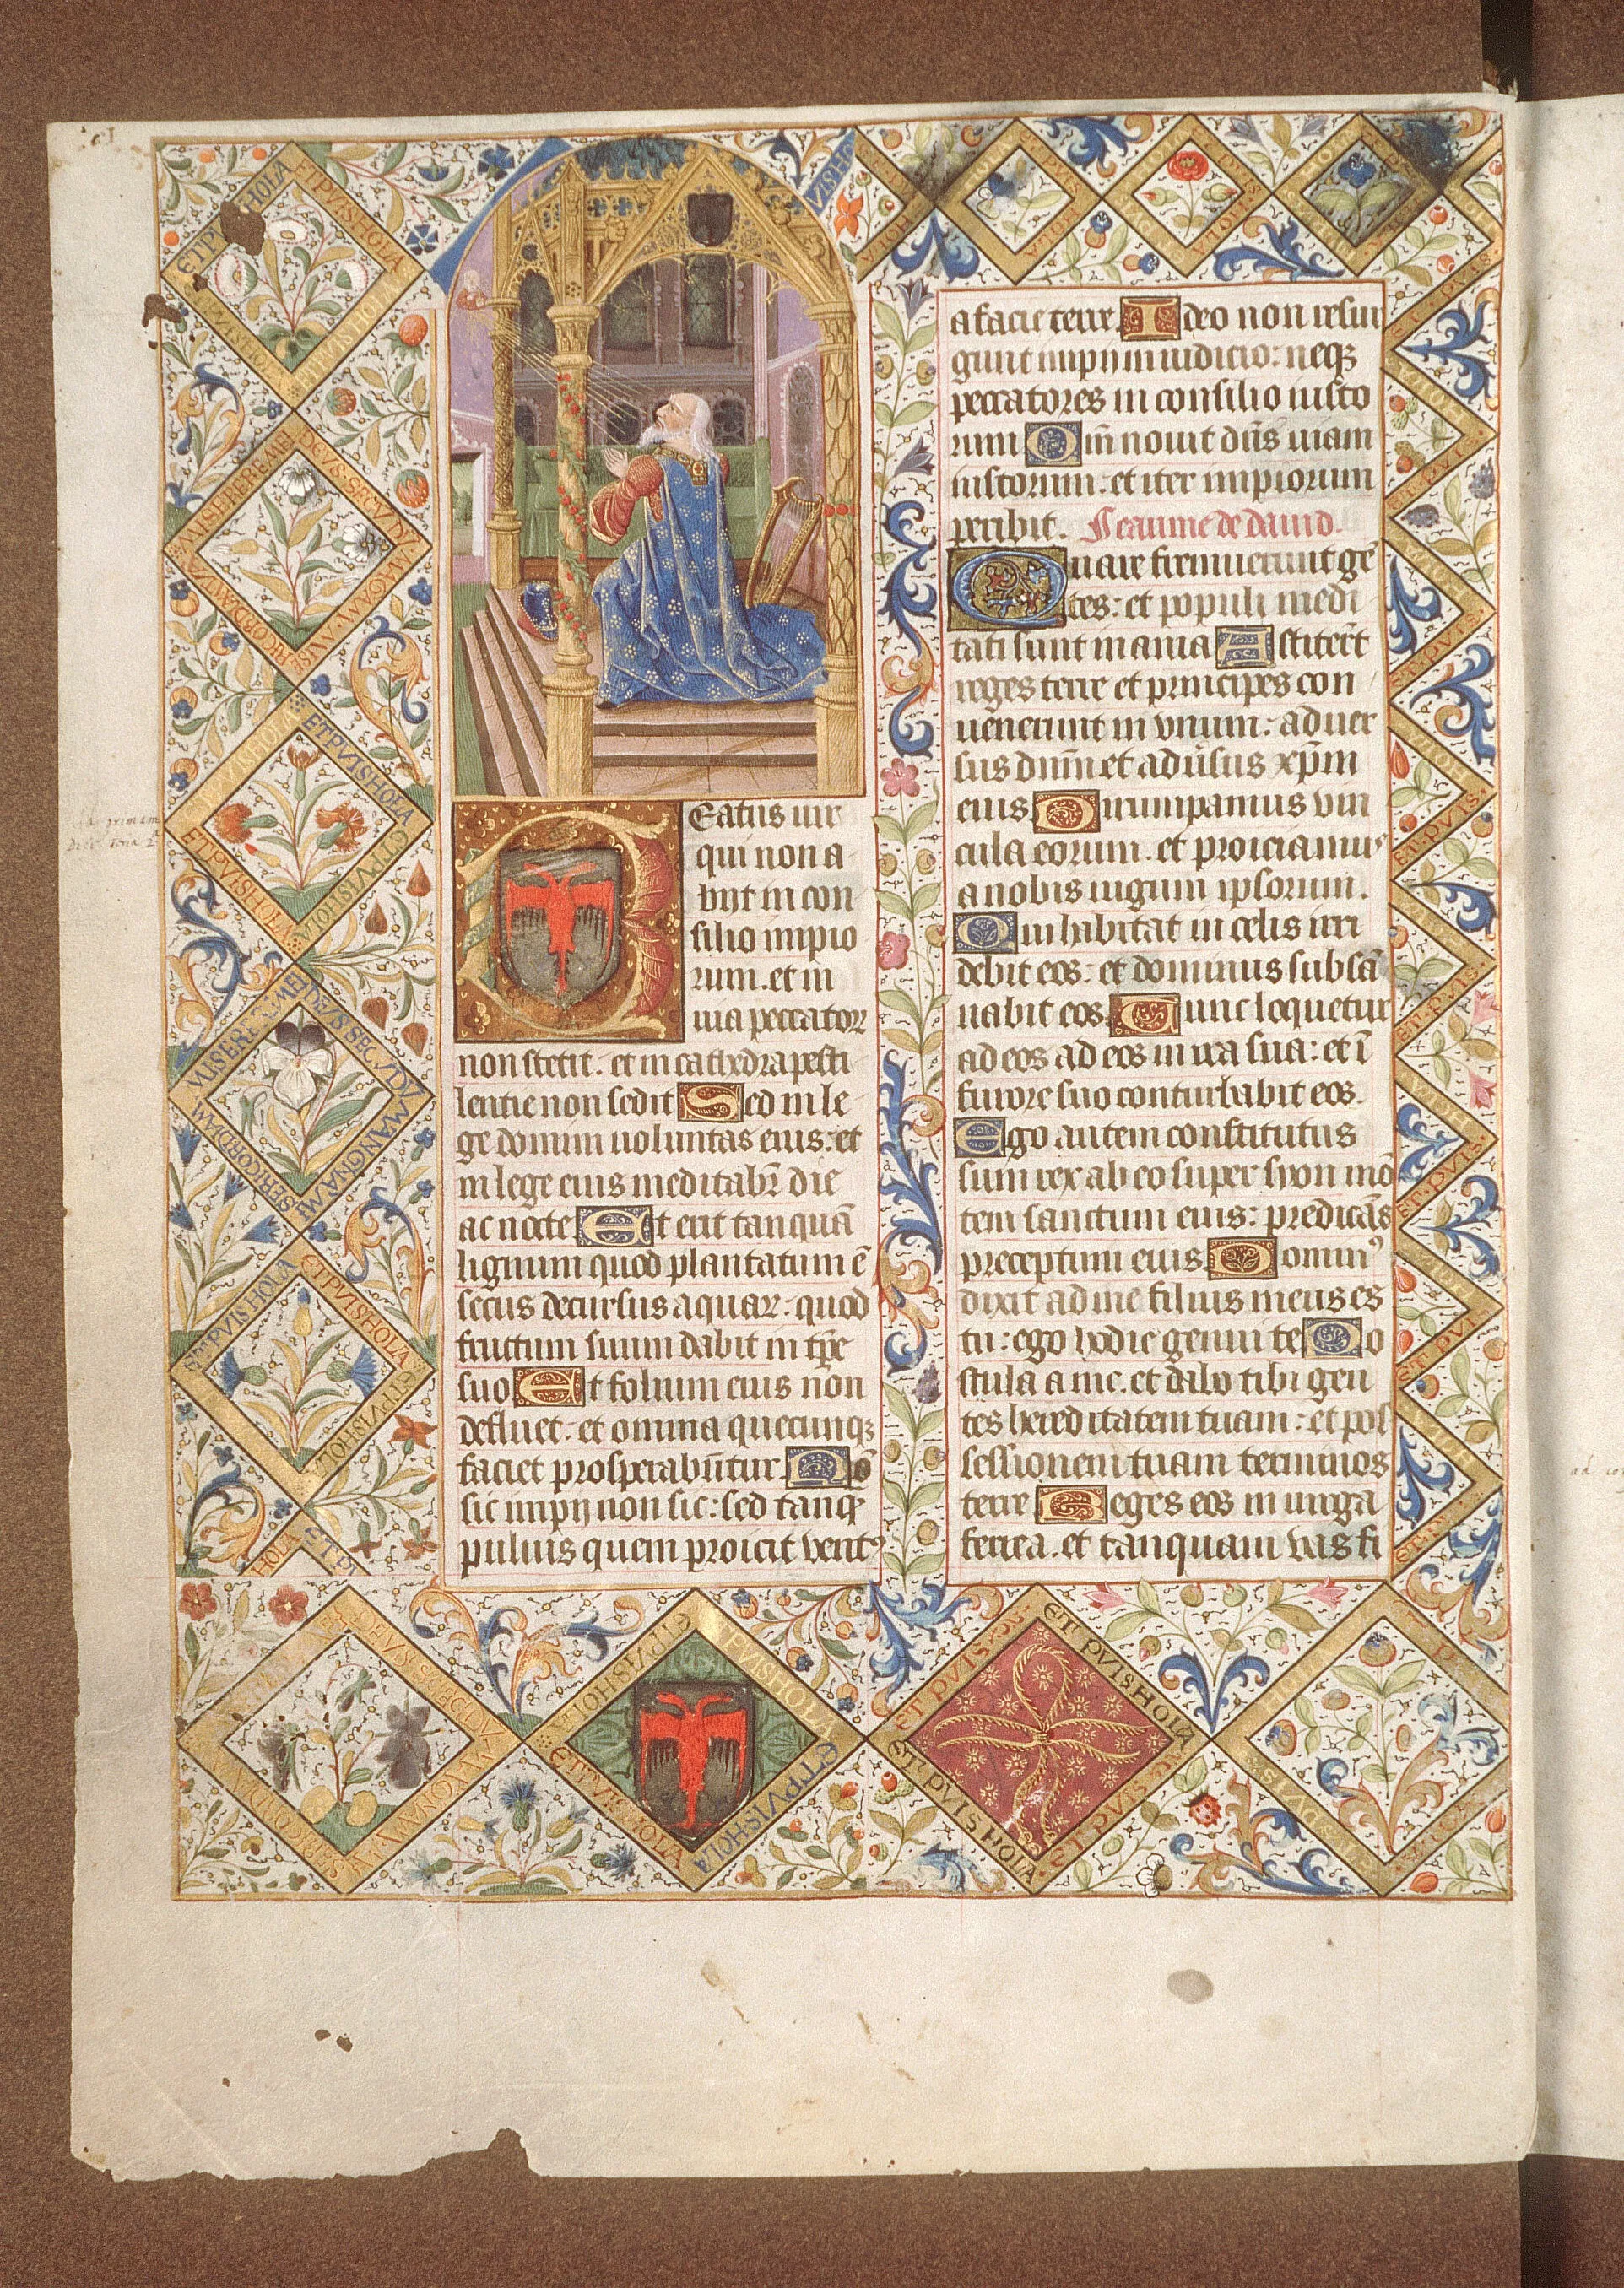 Beatus vir
qui non a-
biit in con
silio impio
rum. et in
via peccator
non stetit. et in cathedra pesti
lentie non sedit Sed in le-
ge domini voluntas eius: et
in lege eius meditabr̄ die
ac nocte Et erit tanquā
lignum quod plantatum ē
secus decursus aquar. quod
fructum suum dabit in tp̄e
suo Et folium eius non
defluet: et omnia quecunqꝫ
faciet prosperabūtur Nō
sic impij non sic: sed tanqꝫ
pulvis quem proicit ventꝰ
a facie terre. Ideo non resur
gunt impij in iudicio: neqꝫ
peccatores in consilio iusto
rum Qm̄ novit dn̄s viam
iustorum. et iter impiorum
peribit. Pseaume de david.
Quare fremuerunt gē
tes: et populi medi
tati sunt inania Astiterūt
reges terre et principes con
venerunt in vnum: aduer
sus dnm̄ et adūsus xp̄m
eius Dirumpamus vin
cula eorum. et proiciamuˢ
a nobis iugum ipsorum.
Qui habitat in celis irri
debit eos: et dominus subsā
nabit eos. Tunc loquetur
ad eos ad eos in ira sua: et ī
furore suo conturbabit eos.
Ego autem constitutus
sum rex ab eo super syon mō
tem sanctum eius: predicās
preceptum eius Dominꝰ
dixit ad me filius meus es
tu: ego hodie genui te Po
stula a me. et dabo tibi gen
tes hereditatem tuam: et pos
sessionem tuam terminos
terre Reges eos in virga
ferrea. et tanquam vas fi
ET PVIS HOLA
ET PVIS HOLA
MISERERE MEI
DEVS SECVDV
MAGNAM
MISERICORDIAM
ET PVIS HOLA
ET PVIS HOLA
ET PVIS HOLA
ET PVIS HOLA
ET PVIS HOLA
ET PVIS HOLA
ET PVIS HOLA
ET PVIS HOLA
ET PVIS HOLA
ET PVIS HOLA